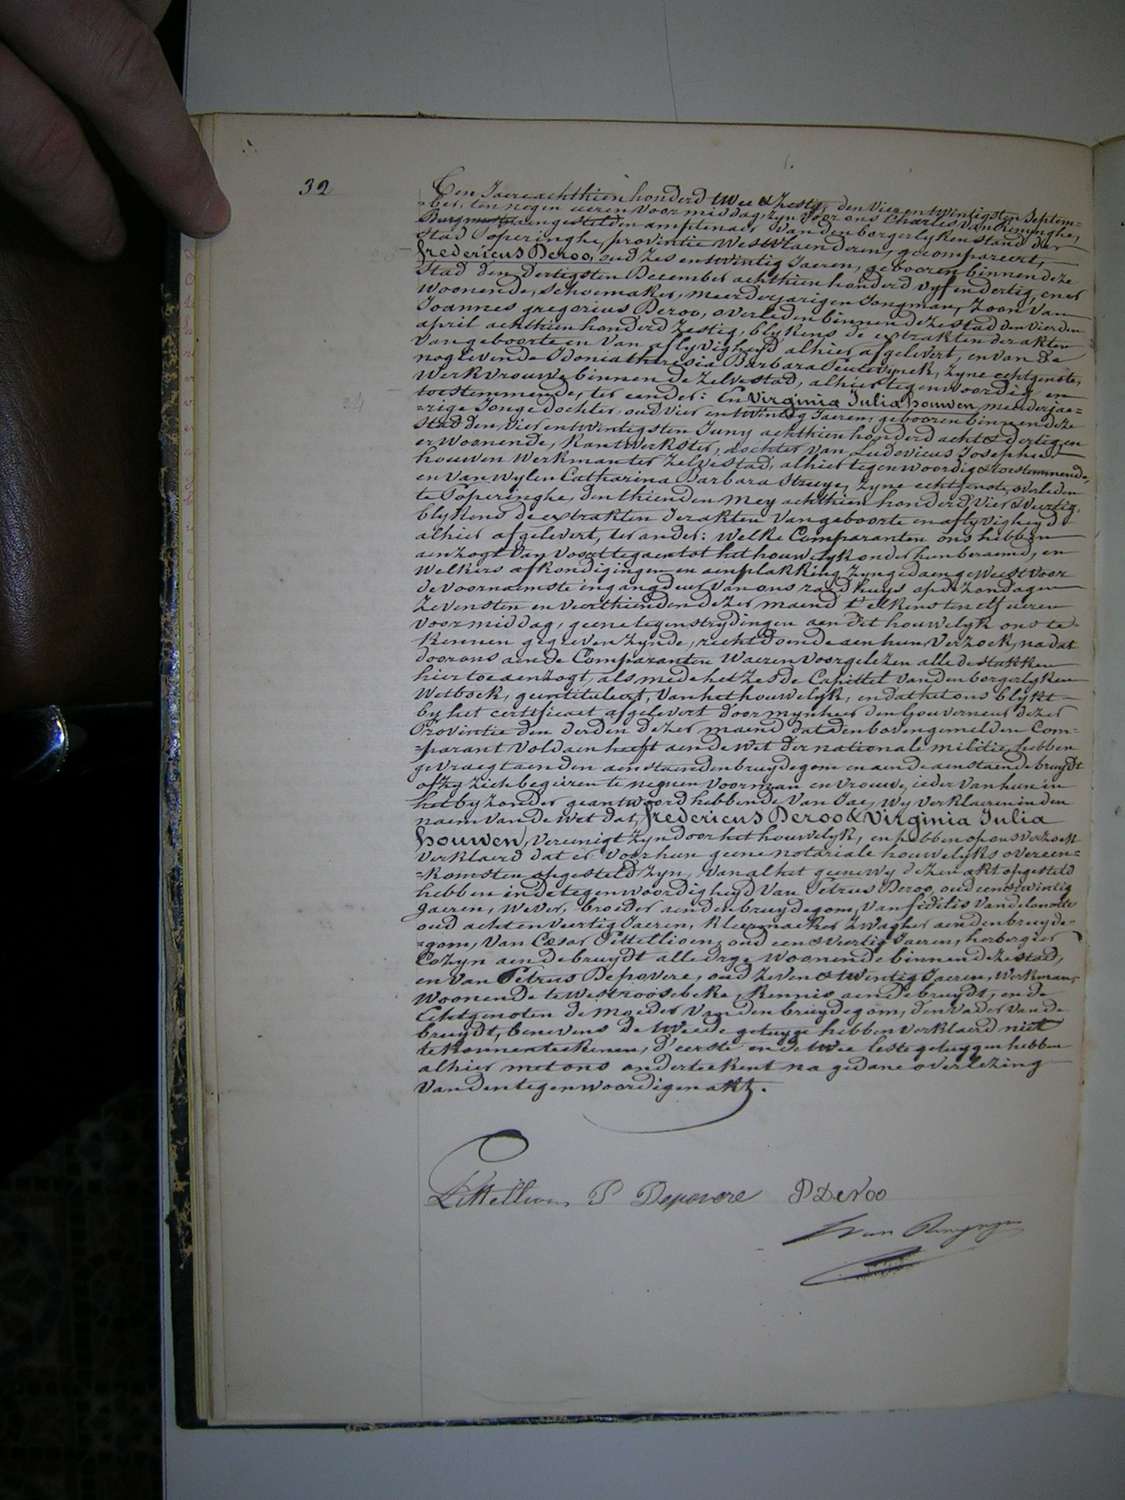 32
Ten Jaere achthien honderd twee & zestig, den vier en twintigsten Septem-
=ber, ten negen ueren voormiddag, zyn voor ons Charles Van Renynghe,
Burgmeester aengestelden amptenaer van den borgerlyken stand der
Stad Poperinghe, provintie Westvlaenderen, gecompareert,
fredericus Deroo, oud zes en twintig Jaeren, gebooren binnen deze
Stad den dertigsten December achthien honderd vyf en dertig, en er
woonende, schoemaker, meerderjarigen Jongman, zoon van
Joannes gregorius Deroo, overleden binnen deze stad den vierden
april achthien honderd zestig, blykens de extrakten der akten
van geboorte en van aflyvigheyd alhier afgelevert, en van de
nog levende Idonia theresia Barbara
Werkvrouwe binnen de zelve stad, alhier tegenwoordig en
toestemmende, ter eender: En Virginia Julia houwen, meerderjae-
=rige Jonge dochter, oud vier en twintig Jaeren, gebooren binnen deze
stad den vier en twintigsten Juny achthien honderd acht & dertig en
er woonende, Kantwerkster, dochter van Ludovicus Josephus
houwen Werkman ter zelve stad, alhier tegenwoordig & toestemmende,
en van wylen Catharina Barbara Struye, zyne echtgenote, overleden
te Poperinghe, den thienden Mey achthien honderd vier & veertig,
blykens de extrakten der akten van geboorte en aflyvigheyd
alhier afgelevert, ter ander: Welke Comparanten ons hebben
aenzogt van voort te gaen tot het houwelyk onder hun beraemd, en
welkers afkondigingen en aenplakking zyn gedaen geweest voor
de voornaemste ingangdeur van ons raedhuys op de zondagen
zevensten en veerthienden dezer maend t'elkensten elf ueren
voormiddag, geene tegenstrydingen aen dit houwelyk ons te
kennen gegeven zynde, recht doende aen hun verzoek, nadat
door ons aen de Comparanten waeren voorgelezen alle de stukken
hiertoe aenzogt, als mede het zesde Capittel van den borgerlyken
Wetboek, geintituleert, van het houwelyk, en dat het ons blykt
by het certificaet afgelevert door mynheer den Gouverneur dezer
Provintie den derden dezer maend dat den bovengemelden Com-
=parant voldaen heeft aen de wet der nationale militie, hebben
gevraegt aen den aenstaenden bruydegom en aen de aenstaende bruydt
of zy zich begeeren te nemen voor man en vrouw, ieder van hun in
het byzonder geantwoord hebbende van Jae, wy verklaeren in den
naem van de wet dat, fredericus Deroo & Virginia Julia
houwen, vereenigt zyn door het houwelyk, en hebben op ons verzoek
verklaerd dat er voor hun geene notariale houwelyks overeen-
=komsten opgesteld zyn, van al het geene wy dezen akt opgesteld
hebben in de tegenwoordigheyd van Petrus Deroo, oud een & twintig
jaeren, wever, broeder aen den bruydegom, van fidelis
oud acht en veertig Jaeren, kleermaeker zwager aen den bruyde-
=gom, van Cesar Pittellioen, oud een & veertig Jaeren, herbergier
Cozyn aen de bruydt alle drye woonende binnen deze stad,
en van Petrus Depovere, oud zeven & twintig Jaeren, werkman,
woonende te Westroosebeke, kennis aen de bruydt, en de
Echtgenoten de moeder van den bruydegom, den vader van de
bruydt, benevens de tweede getuyge hebben verklaerd niet
te konnen teekenen, d'eerste en de twee leste getuygen hebben
alhier met ons onderteekent na gedane overlezing
van den tegenwoordigen akt.
Pittellioen P Depovere P Deroo
Van Renynghe